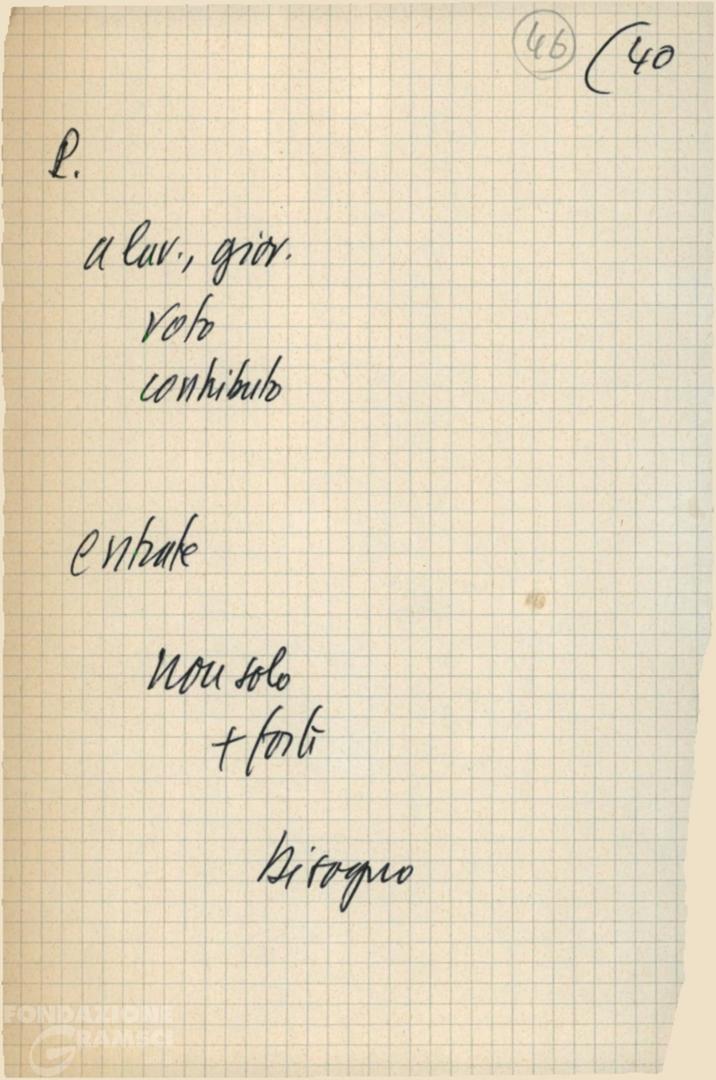 46 (40
P.
a lav., giov.
voto
contributo
entrate
non solo
+ forti
bisogno
FONDAZIONE
GRAMSCI